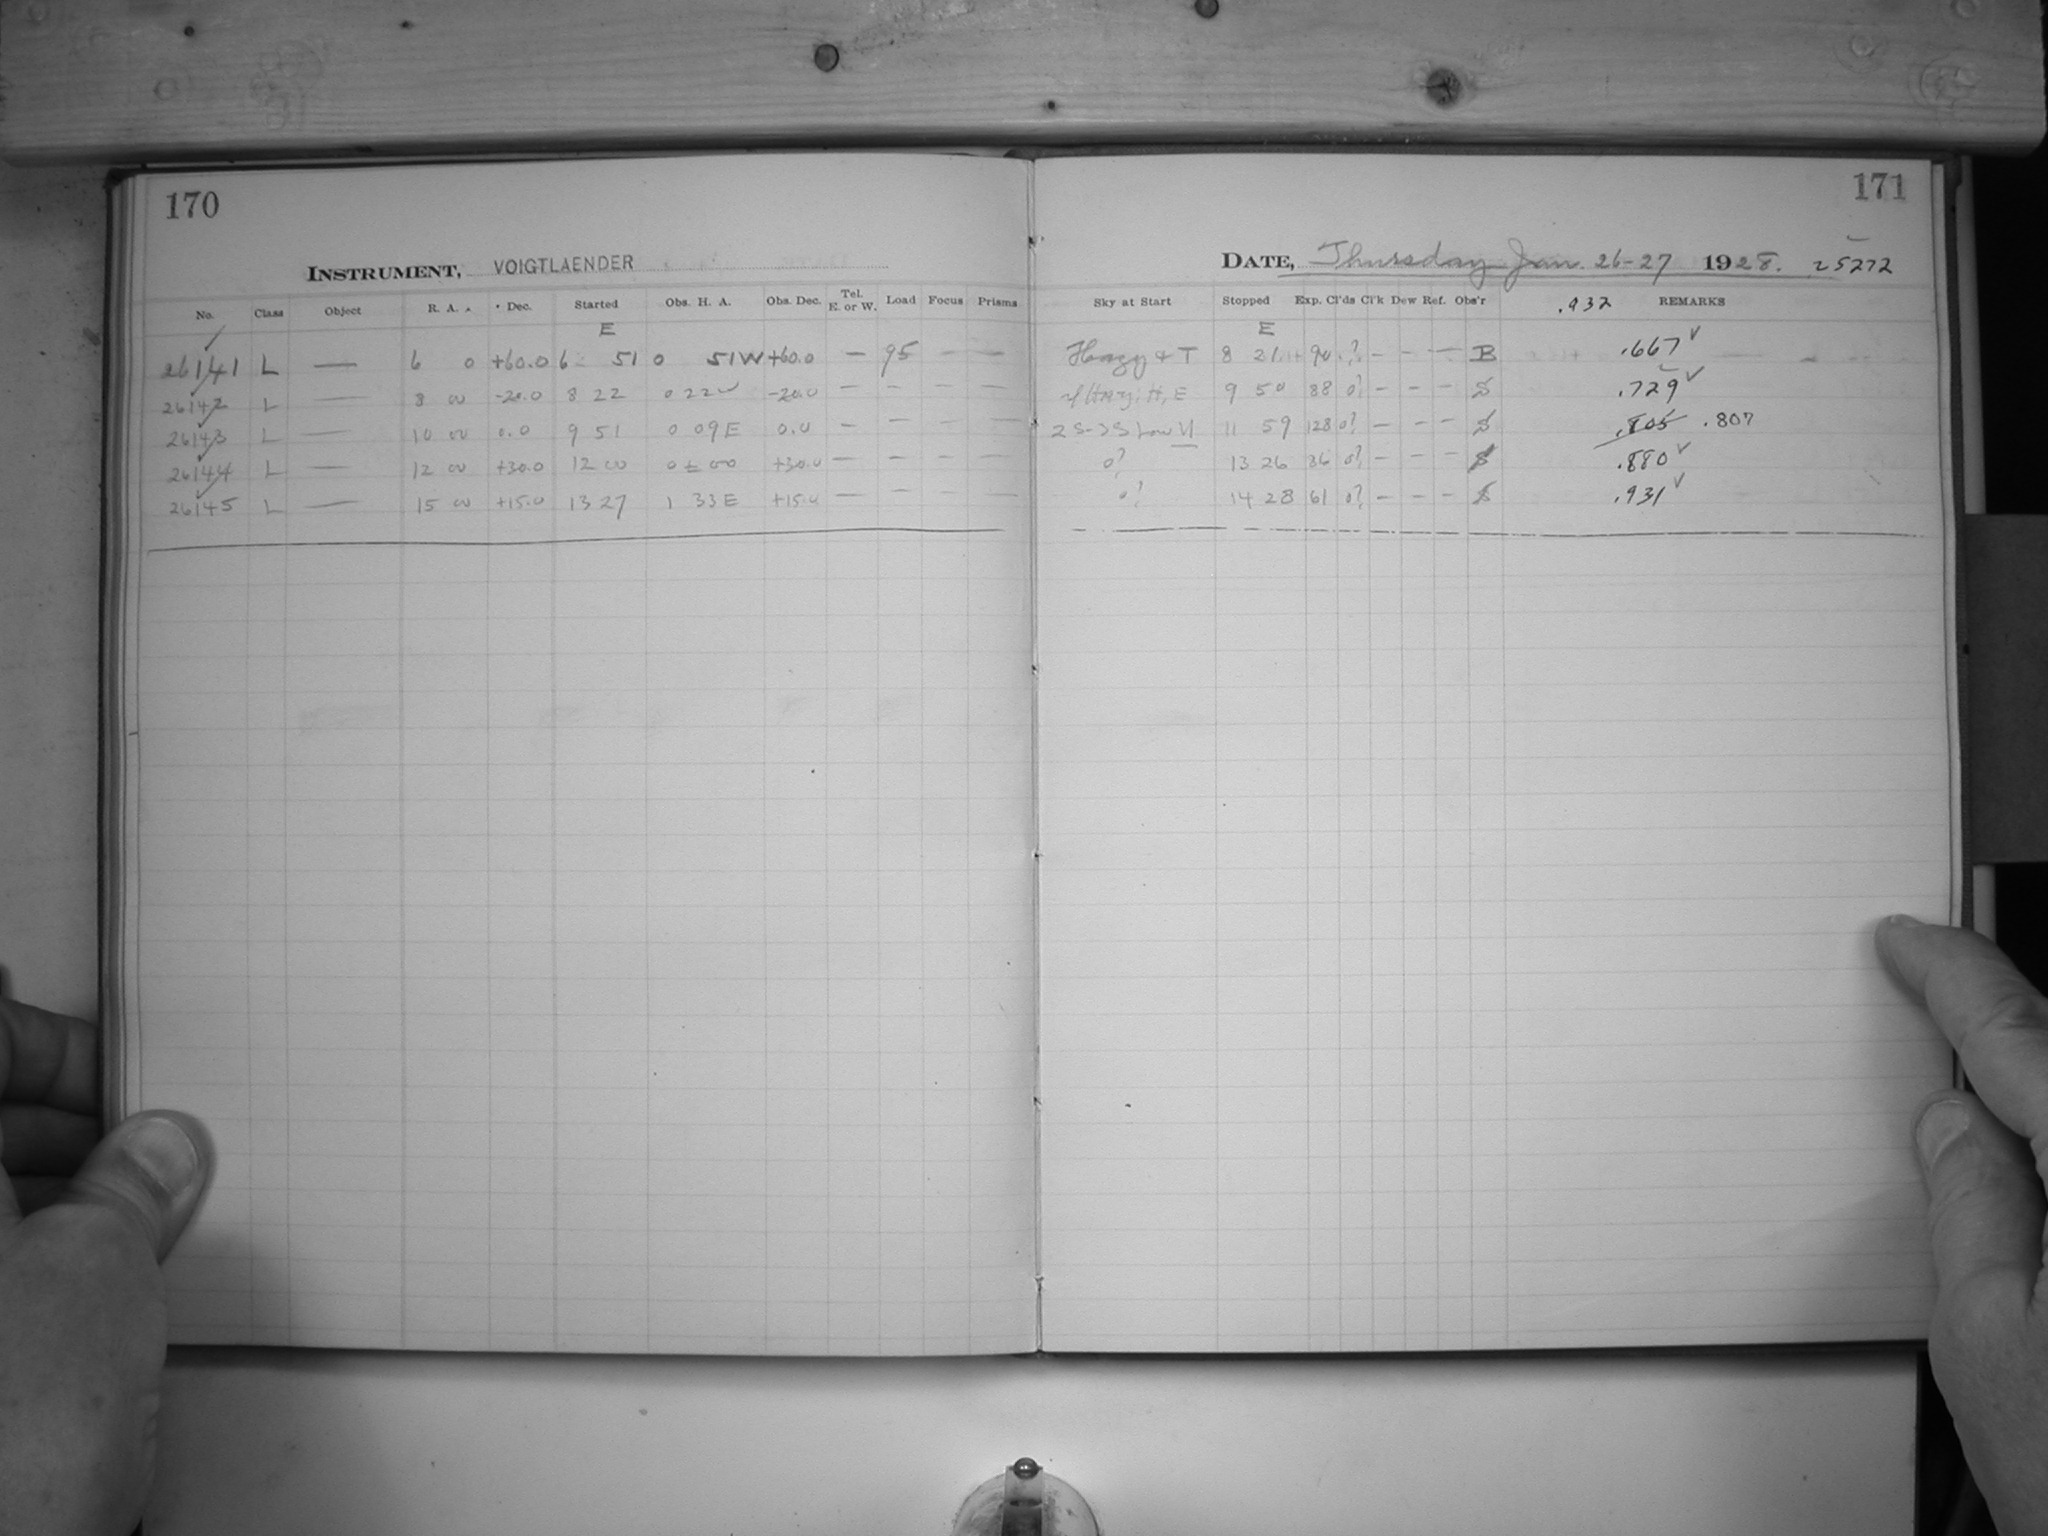 170
INSTRUMENT, VOIGTLAENDER
No. Class Object R. A. Dec. Started Obs. H. A. Obs. Dec. Tel. E. or W. Load Focus Prisms
E
26141 L — 6 0 +60.0 6 51 0 51W +60.0 — 95 — —
26142 L — 8 00 -20.0 8 22 0 22W -20.0 — — — —
26143 L — 10 00 0.0 9 51 0 09E 0.0 — — — —
26144 L — 12 00 +30.0 12 00 0 ± 00 +30.0 — — — —
26145 L — 15 00 +15.0 13 27 1 33E +15.0 — — — —
171
DATE, Thursday Jan 26-27 1928. 25272
Sky at Start Stopped Exp. Cl'ds Cl'k Dew Ref. Obs'r .932 REMARKS
E
Hazy + T 8 21 90 ? — — — B .667 ✓
H, E 9 50 88 0? — — — S .729 ✓
Low 11 59 128 0? — — — S .805 .807
0? 13 26 86 0? — — — S .880 ✓
0? 14 28 61 0? — — — S .931 ✓